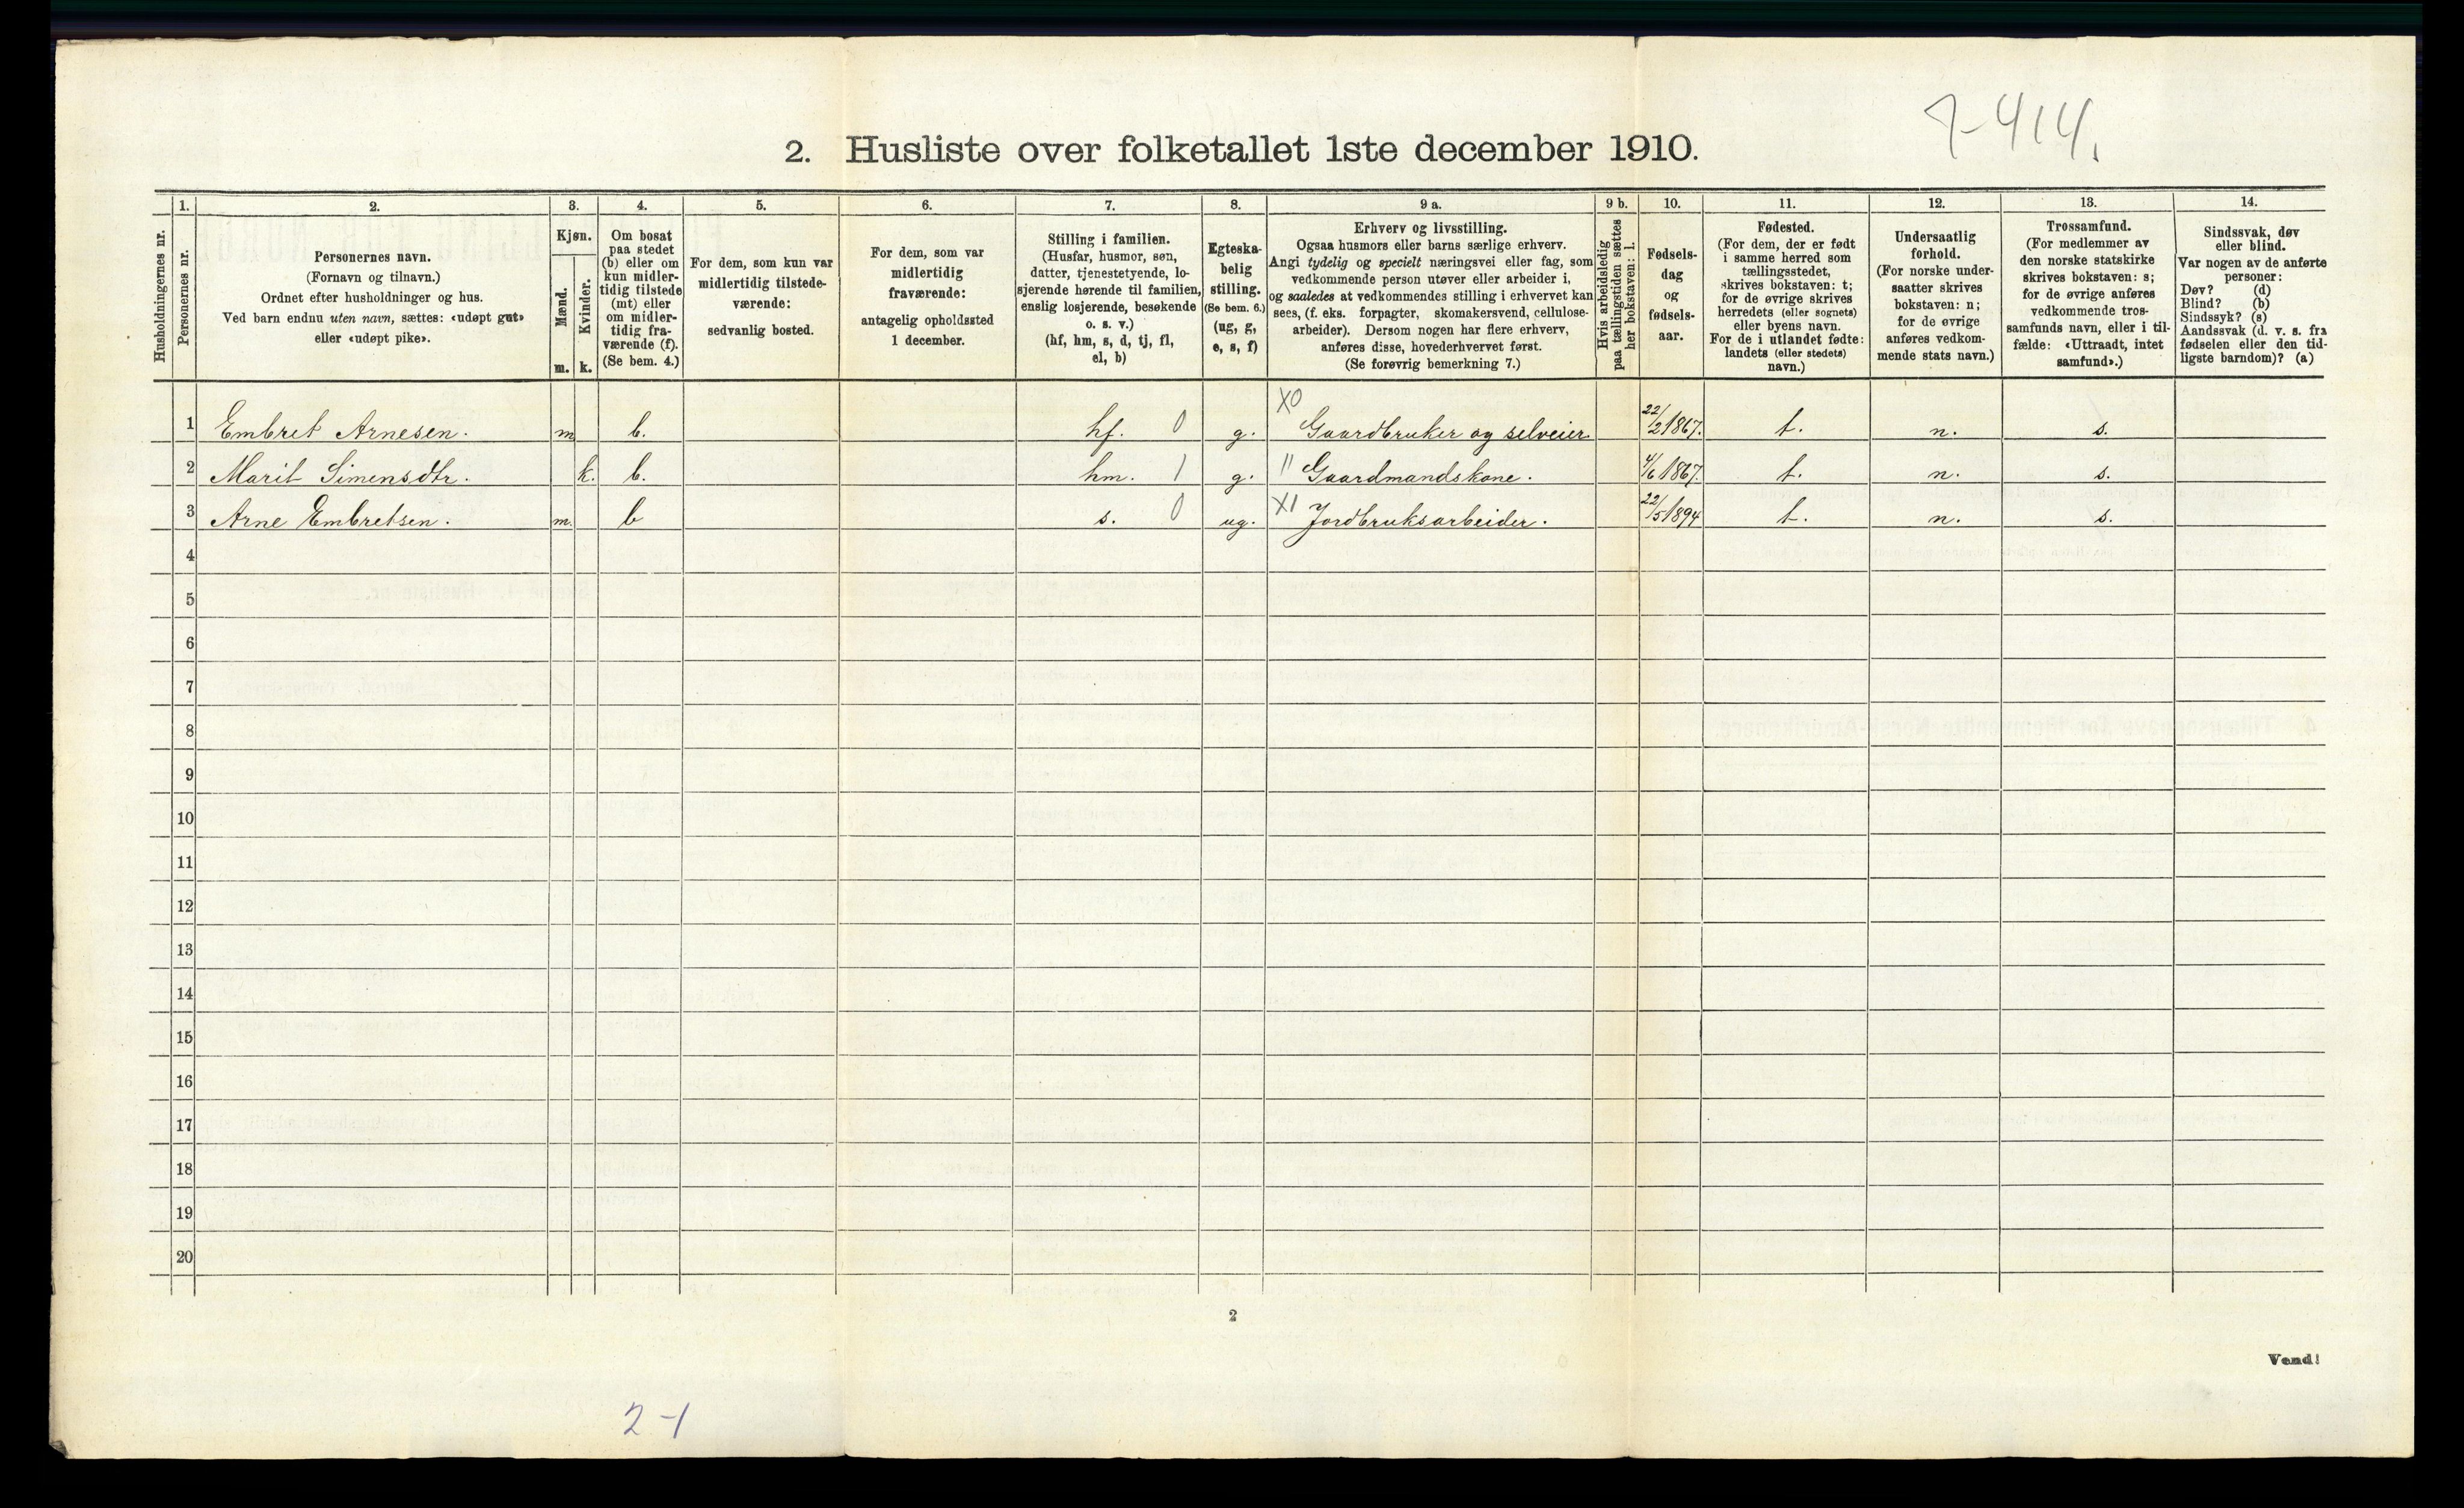 7-414.
2. Husliste over folketallet 1ste december 1910.
Husholdningernes nr.
1.
Personernes nr.
2.
Personernes navn.
(Fornavn og tilnavn.)
Ordnet efter husholdninger og hus.
Ved barn endnu uten navn, sættes: «udøpt gut»
eller «udøpt pike».
3.
Kjøn.
Mænd.
Kvinder.
m. k.
4.
Om bosat
paa stedet
(b) eller om
kun midler-
tidig tilstede
(mt) eller
om midler-
tidig fra-
værende (f).
(Se bem. 4.)
5.
For dem, som kun var
midlertidig tilstede-
værende:
sedvanlig bosted.
6.
For dem, som var
midlertidig
fraværende:
antagelig opholdssted
1 december.
7.
Stilling i familien.
(Husfar, husmor, søn,
datter, tjenestetyende, lo-
sjerende hørende til familien,
enslig losjerende, besøkende
o. s. v.)
(hf, hm, s, d, tj, fl,
el, b)
8.
Egteska-
belig
stilling.
(Se bem. 6.)
(ug, g,
e, s, f)
9 a.
Erhverv og livsstilling.
Ogsaa husmors eller barns særlige erhverv.
Angi tydelig og specielt næringsvei eller fag, som
vedkommende person utøver eller arbeider i,
og saaledes at vedkommendes stilling i erhvervet kan
sees, (f. eks. forpagter, skomakersvend, cellulose-
arbeider). Dersom nogen har flere erhverv,
anføres disse, hovederhvervet først.
(Se forøvrig bemerkning 7.)
9 b.
Hvis arbeidsledig
paa tællingstiden sættes
her bokstaven: l.
10.
Fødsels-
dag
og
fødsels-
aar.
11.
Fødested.
(For dem, der er født
i samme herred som
tællingsstedet,
skrives bokstaven: t;
for de øvrige skrives
herredets (eller sognets)
eller byens navn.
For de i utlandet fødte:
landets (eller stedets)
navn.)
12.
Undersaatlig
forhold.
(For norske under-
saatter skrives
bokstaven: n;
for de øvrige
anføres vedkom-
mende stats navn.)
13.
Trossamfund.
(For medlemmer av
den norske statskirke
skrives bokstaven: s;
for de øvrige anføres
vedkommende tros-
samfunds navn, eller i til-
fælde: «Uttraadt, intet
samfund».)
14.
Sindssvak, døv
eller blind.
Var nogen av de anførte
personer:
Døv? (d)
Blind? (b)
Sindssyk? (s)
Aandssvak (d. v. s. fra
fødselen eller den tid-
ligste barndom)? (a)
1 Embret Arnesen. m b. hf. 0 g. X0 Gaardbruker og selveier. 22/2 1867. t. n. s.
2 Marit Simensdtr. k. b. hm. 1 g. " Gaardmandskone. 4/6 1867. t. n. s.
3 Arne Embretsen. m. b s. 0 ug. X1 Jordbruksarbeider. 22/5 1894 t. n. s.
4
5
6
7
8
9
10
11
12
13
14
15
16
17
18
19
20
2
Vend!
2-1